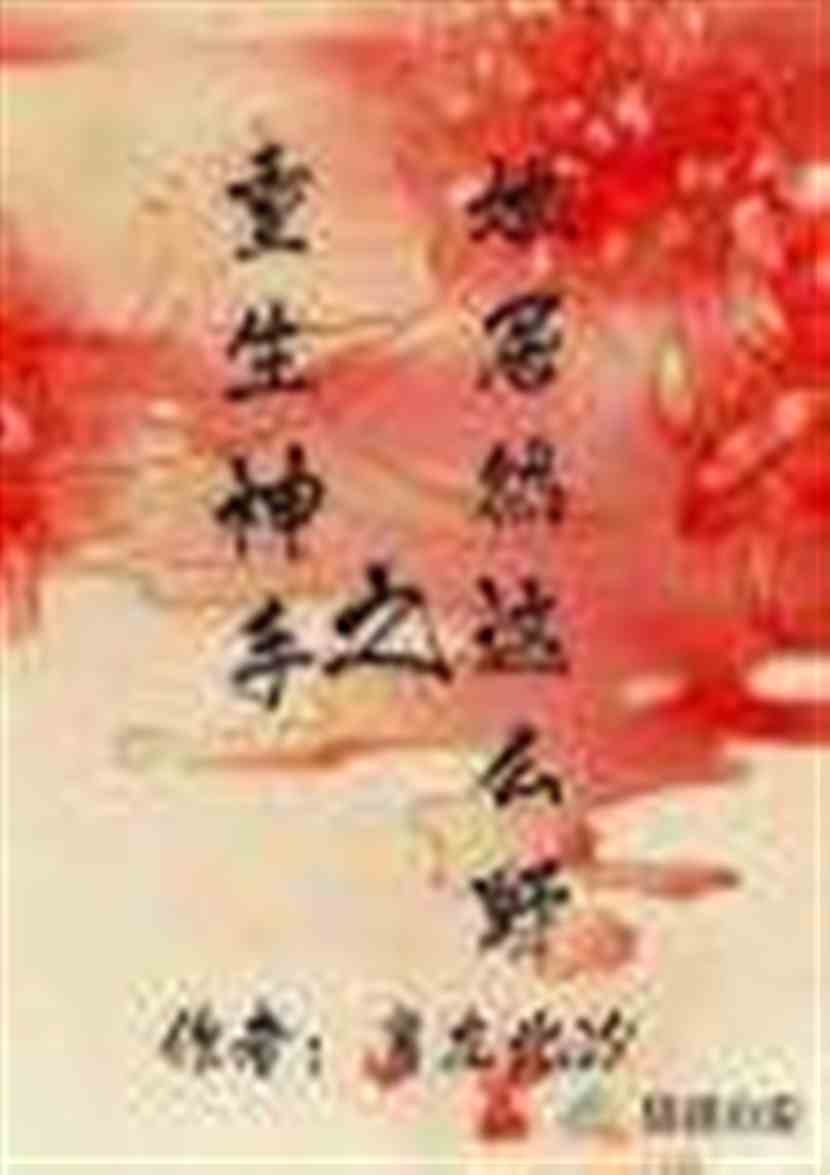 重生神手
之
她居然这么野
作者：